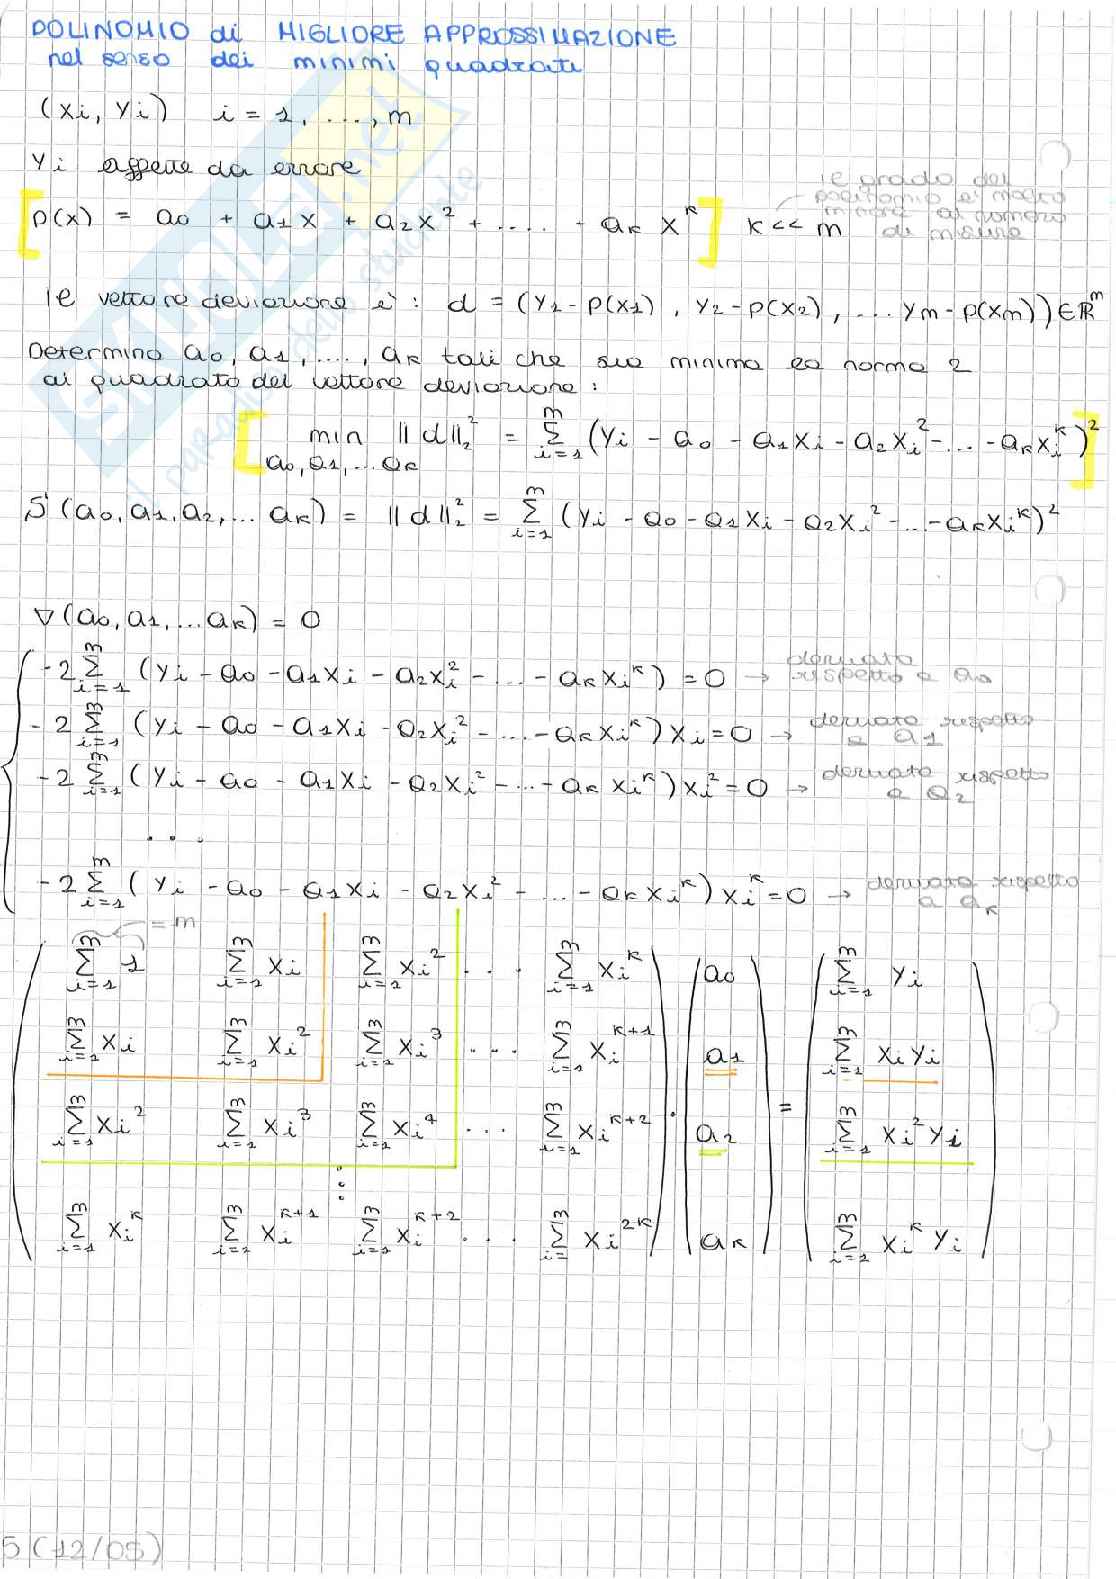 POLINOMIO di MIGLIORE APPROSSIMAZIONE
nel senso dei minimi quadrati
(xi, yi) i = 1, ..., m
yi affette da errore
[p(x) = a0 + a1x + a2x² + .... + ak x^k] k << m
il grado del polinomio e' molto minore al numero di misure
Il vettore deviazione è: d = (y1 - p(x1), y2 - p(x2), ... ym - p(xm)) ∈ ℝ^m
Determino a0, a1, ...., ak tali che sia minima la norma 2
al quadrato del vettore deviazione:
[min ||d||₂² = Σ_{i=1}^m (yi - a0 - a1xi - a2xi² - ... - akxi^k)²]
a0, a1, ... ak
S(a0, a1, a2, ... ak) = ||d||₂² = Σ_{i=1}^m (yi - a0 - a1xi - a2xi² - ... - akxi^k)²
∇(a0, a1, ... ak) = 0
-2 Σ_{i=1}^m (yi - a0 - a1xi - a2xi² - ... - akxi^k) = 0 → derivata rispetto a a0
-2 Σ_{i=1}^m (yi - a0 - a1xi - a2xi² - ... - akxi^k) xi = 0 → derivata rispetto a a1
-2 Σ_{i=1}^m (yi - a0 - a1xi - a2xi² - ... - ak xi^k) xi² = 0 → derivata rispetto a a2
...
-2 Σ_{i=1}^m (yi - a0 - a1xi - a2xi² - ... - akxi^k) xi^k = 0 → derivata rispetto a ak
= m
Σ_{i=1}^m 1 Σ_{i=1}^m xi Σ_{i=1}^m xi² ... Σ_{i=1}^m xi^k a0 Σ_{i=1}^m yi
Σ_{i=1}^m xi Σ_{i=1}^m xi² Σ_{i=1}^m xi³ ... Σ_{i=1}^m xi^{k+1} a1 Σ_{i=1}^m xi yi
Σ_{i=1}^m xi² Σ_{i=1}^m xi³ Σ_{i=1}^m xi⁴ ... Σ_{i=1}^m xi^{k+2} · a2 = Σ_{i=1}^m xi² yi
⋮
Σ_{i=1}^m xi^k Σ_{i=1}^m xi^{k+1} Σ_{i=1}^m xi^{k+2} ... Σ_{i=}^m xi^{2k} ak Σ_{i=1}^m xi^k yi
5 (12/05)